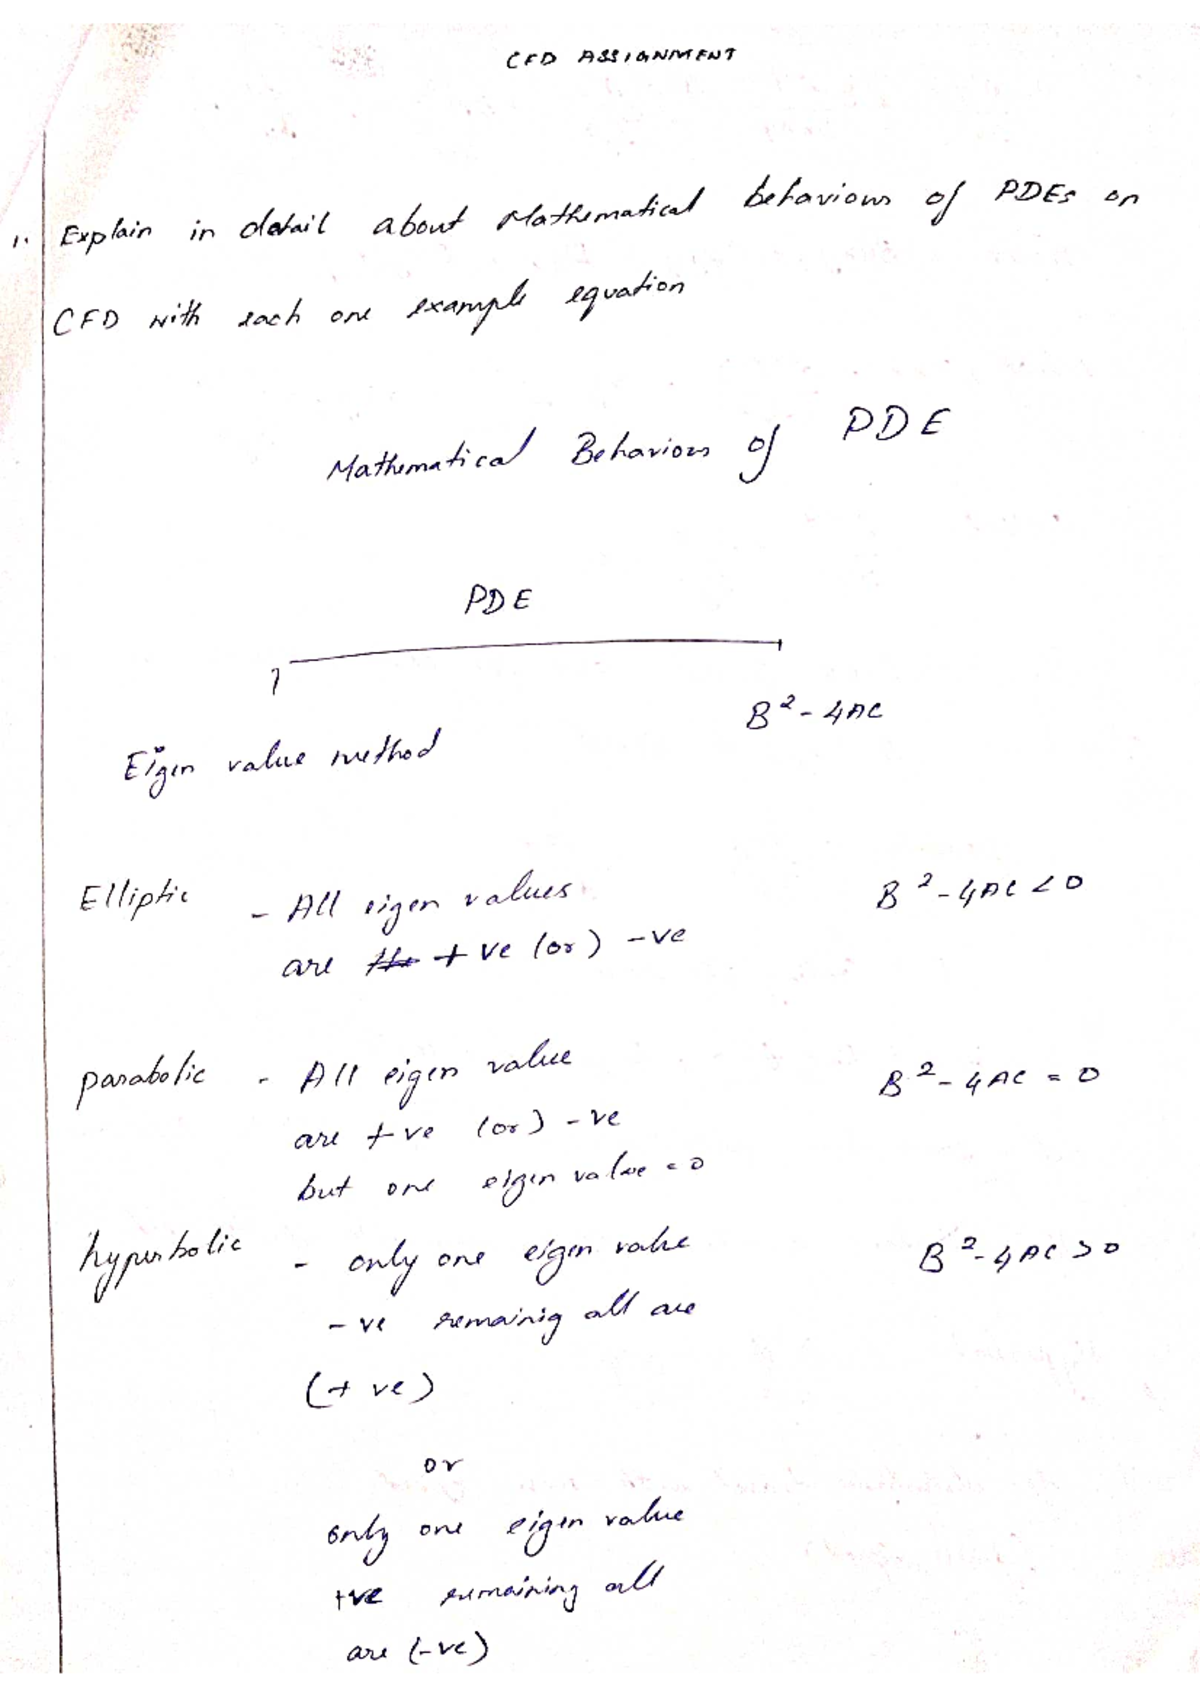 CFD ASSIGNMENT
1. Explain in detail about Mathematical behaviours of PDEs on
CFD with each one example equation
Mathematical Behaviors of PDE
PDE
Eigen value method B²-4AC
Elliptic - All eigen values B²-4AC<0
are the +ve (or) -ve
parabolic - All eigen value B²-4AC=0
are +ve (or) -ve
but one eigen value=0
hyperbolic - only one eigen value B²-4AC>0
-ve remainig all are
(+ve)
or
only one eigen value
+ve remaining all
are (-ve)